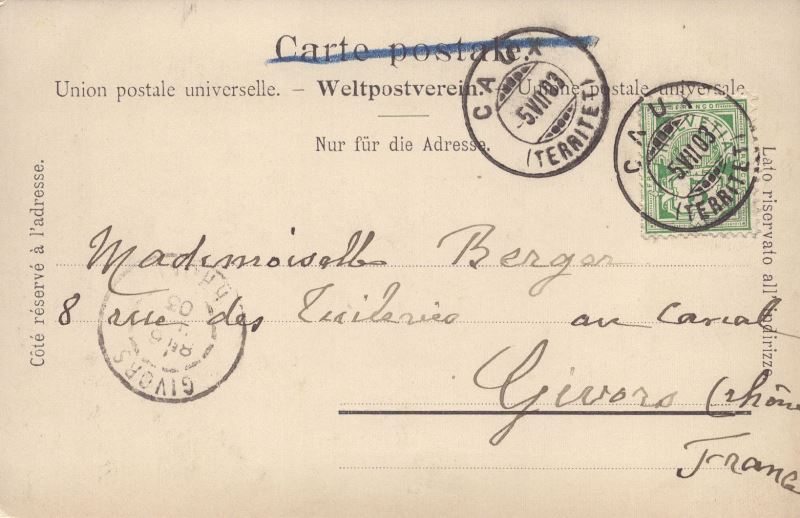 Carte postale.
Union postale universelle. – Weltpostverein. – Unione postale universale
Nur für die Adresse.
Côté réservé à l'adresse.
Lato riservato all' indirizzo
CAUX
5.VII.03
(TERRITET)
CAUX
5.VII.03
(TERRITET)
HELVETIA
Mademoiselle Berger
8 rue des Tuileries au canal
Givors (Rhône
France
GIVORS
03